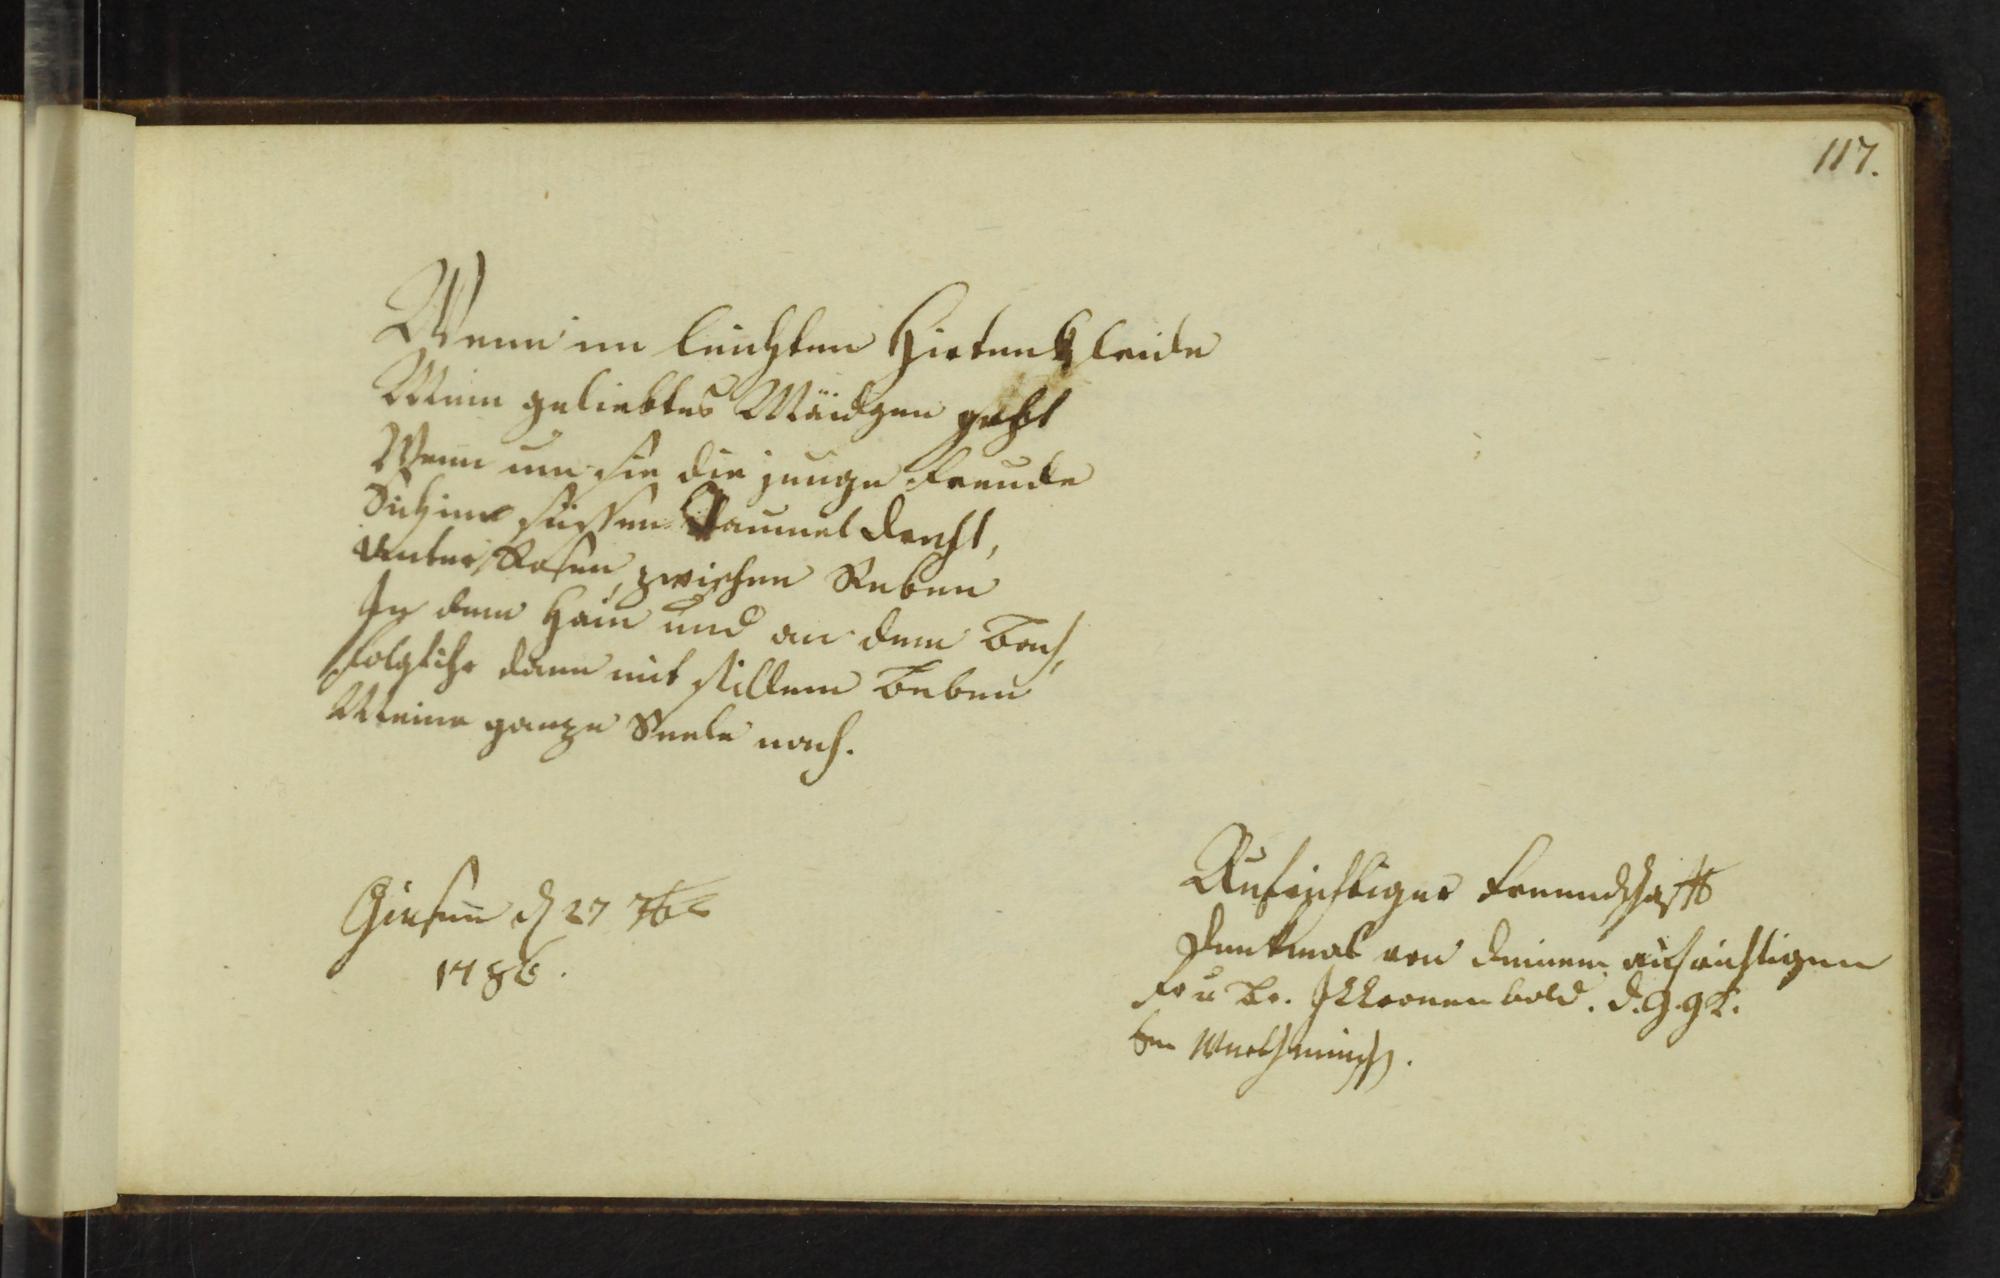 117.
Wenn im leichten Hirtenkleide
Mein geliebtes Mäidgen geht
Wenn um sie die junge Freude
Sich im süssen Taumel dreht,
Unter Rosen, zwischen Reben
In dem Hain und an dem Bach,
Folgt ihr dann mit stillem Beben
Meine ganze Seele nach.
Giesen d 27 7br
1786.
Aufrichtiger Freundschafft
Denkmal von deinem aufrichtigen
Fr u Br. Kronenbold. d. G. G. B.